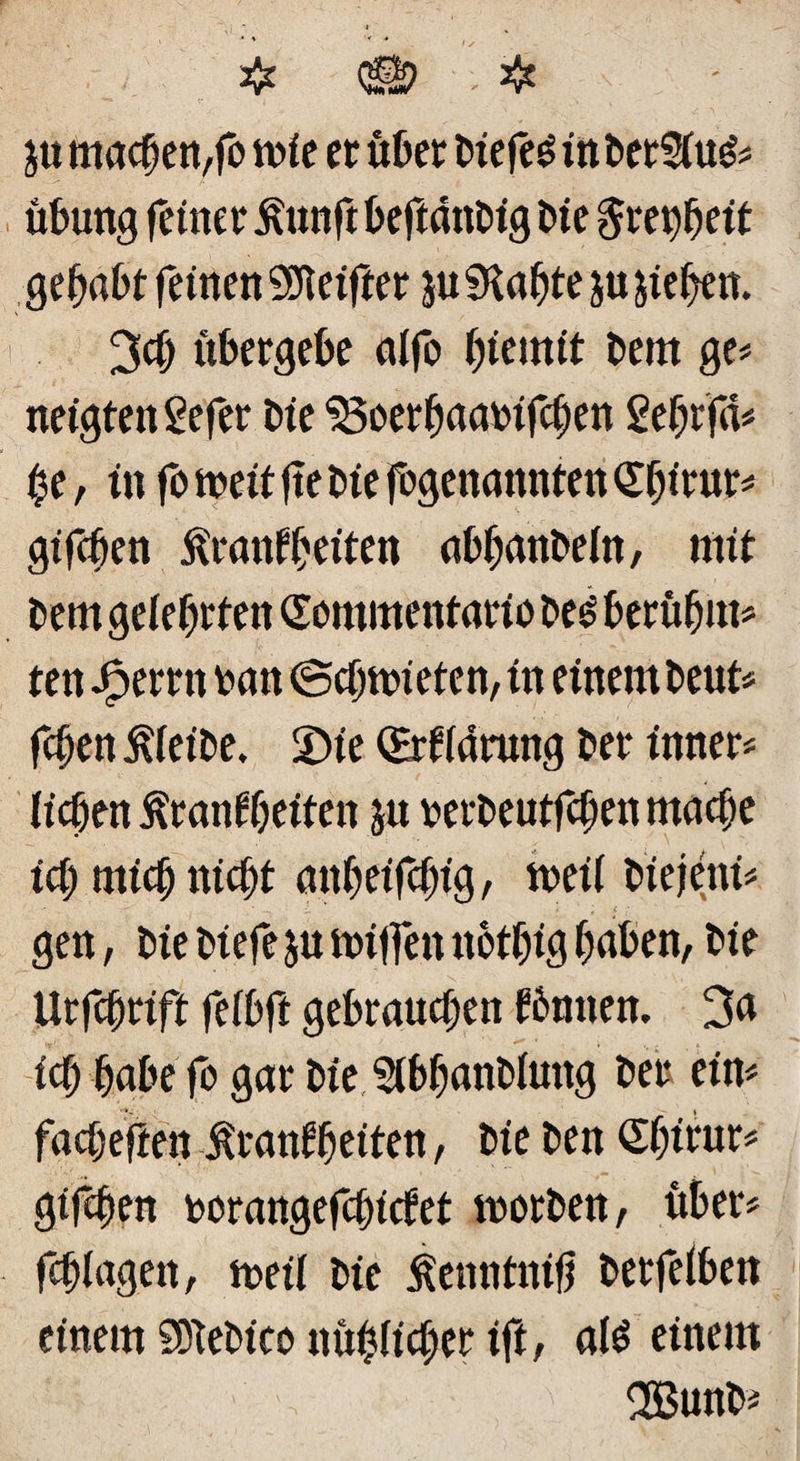 zu machen, so wie er über dieses in der Aus⸗
übung seiner Kunst beständig die Freyheit
gehabt seinen Meister zu Rahte zu ziehen.
Ich übergebe also hiemit dem ge⸗
neigten Leser die Boerhaavischen Lehrsä⸗
tze, in so weit sie die sogenannten Chirur⸗
gischen Krankheiten abhandeln, mit
dem gelehrten Commentario des berühm⸗
ten Herrn van Schwieten, in einem deut⸗
schen Kleide. Die Erklärung der inner⸗
lichen Krankheiten zu verdeutschen mache
ich mich nicht anheischig, weil diejeni⸗
gen, die diese zu wissen nöthig haben, die
Urschrift selbst gebrauchen können. Ja
ich habe so gar die Abhandlung der ein⸗
fachesten Krankheiten, die den Chirur⸗
gischen vorangeschicket worden, über⸗
schlagen, weil die Kenntniß derselben
einem Medico nützlicher ist, als einem
Wund⸗